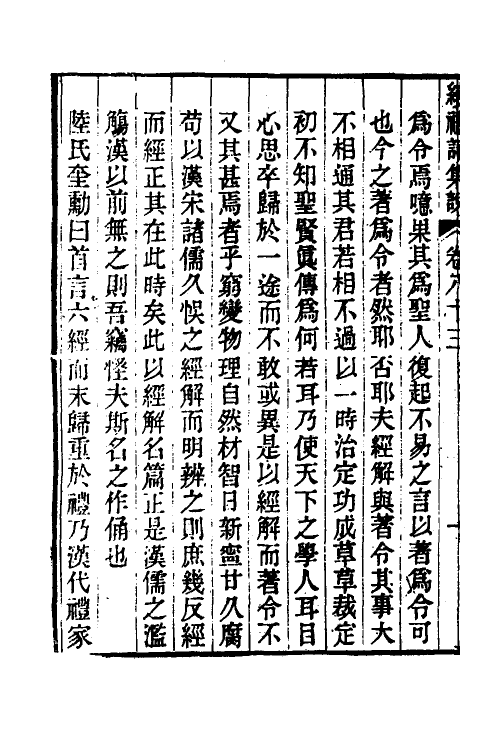 續禮記集說 卷八十三
爲令焉噫果其爲聖人復起不易之言以著爲令可
也今之著爲令者然耶否耶夫經解與著令其事大
不相通其君若相不過以一時治定功成草草裁定
初不知聖賢眞傳爲何若耳乃使天下之學人耳目
心思卒歸於一途而不敢或異是以經解而著令不
又其甚焉者乎窮變物理自然材智日新寧甘久腐
苟以漢宋諸儒久悞之經解而明辨之則庶幾反經
而經正其在此時矣此以經解名篇正是漢儒之濫
觴漢以前無之則吾竊怪夫斯名之作俑也
陸氏奎勳曰首言六經而末歸重於禮乃漢代禮家